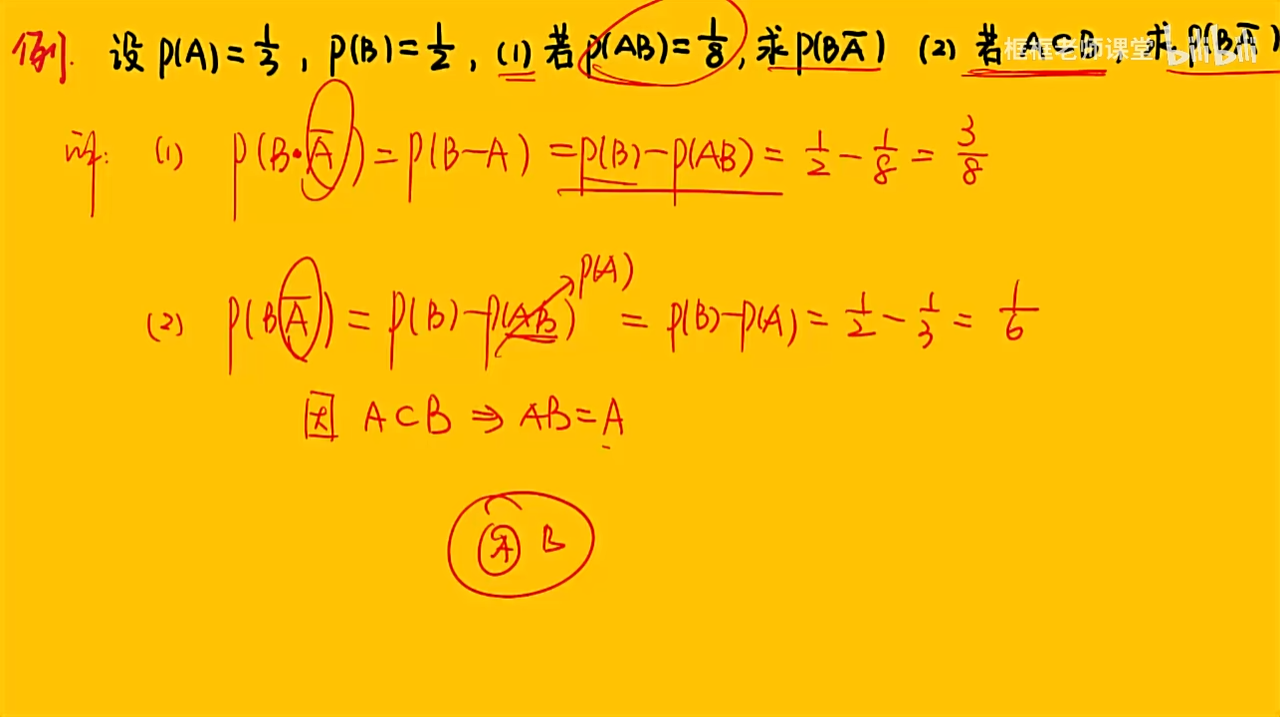 例. 设 P(A)=1/3, P(B)=1/2, (1) 若 P(AB)=1/8, 求 P(BA̅) (2) 若 A⊂B, 求 P(BA̅)
框框老师课堂 bilibili
解: (1) P(B·A̅)=P(B-A)=P(B)-P(AB)=1/2-1/8=3/8
P(A)
(2) P(BA̅)=P(B)-P(AB)=P(B)-P(A)=1/2-1/3=1/6
因 A⊂B⇒AB=A
A B